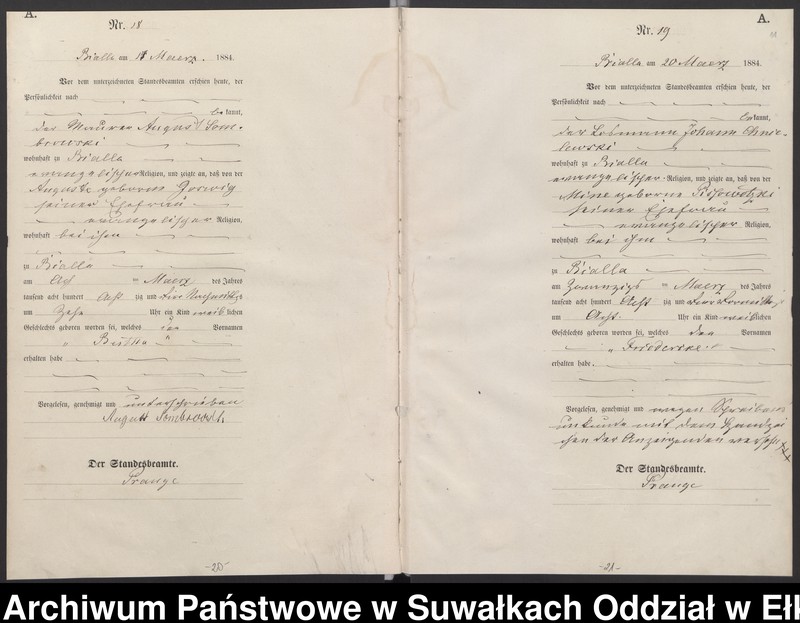 A.
Nr. 18
Bialla am 11 Maerz. 1884.
Vor dem unterzeichneten Standesbeamten erschien heute, der
Persönlichkeit nach
be kannt,
der Maurer August Som-
browski
wohnhaft zu Bialla
evangelischer Religion, und zeigte an, daß von der
Auguste geborne
seiner Ehefrau
evangelischer Religion,
wohnhaft bei ihm
zu Bialla
am Maerz des Jahres
tausend acht hundert acht zig und vier Nachmittags
um Zehn Uhr ein Kind weib lichen
Geschlechts geboren worden sei, welches den Vornamen
" Bertha "
erhalten habe
Vorgelesen, genehmigt und unterschrieben
August Sombrowski
Der Standesbeamte.
Prange
-20-
A.
Nr. 19
Bialla am 20 Maerz 1884.
Vor dem unterzeichneten Standesbeamten erschien heute, der
Persönlichkeit nach
be kannt,
der Losmann Johann Chmie-
lewski
wohnhaft zu Bialla
evangelischer Religion, und zeigte an, daß von der
Mine geborne
seiner Ehefrau
evangelischer Religion,
wohnhaft bei ihm
zu Bialla
am Maerz des Jahres
tausend acht hundert acht zig und vier Vormittags
um Acht Uhr ein Kind weib lichen
Geschlechts geboren worden sei, welches den Vornamen
" Friederike "
erhalten habe.
Vorgelesen, genehmigt und wegen Schreibens
unkunde mit dem Handzei
chen der Anzeigenden versehen
xxx
Der Standesbeamte.
Prange
-21-
Archiwum Państwowe w Suwałkach Oddział w Ełk